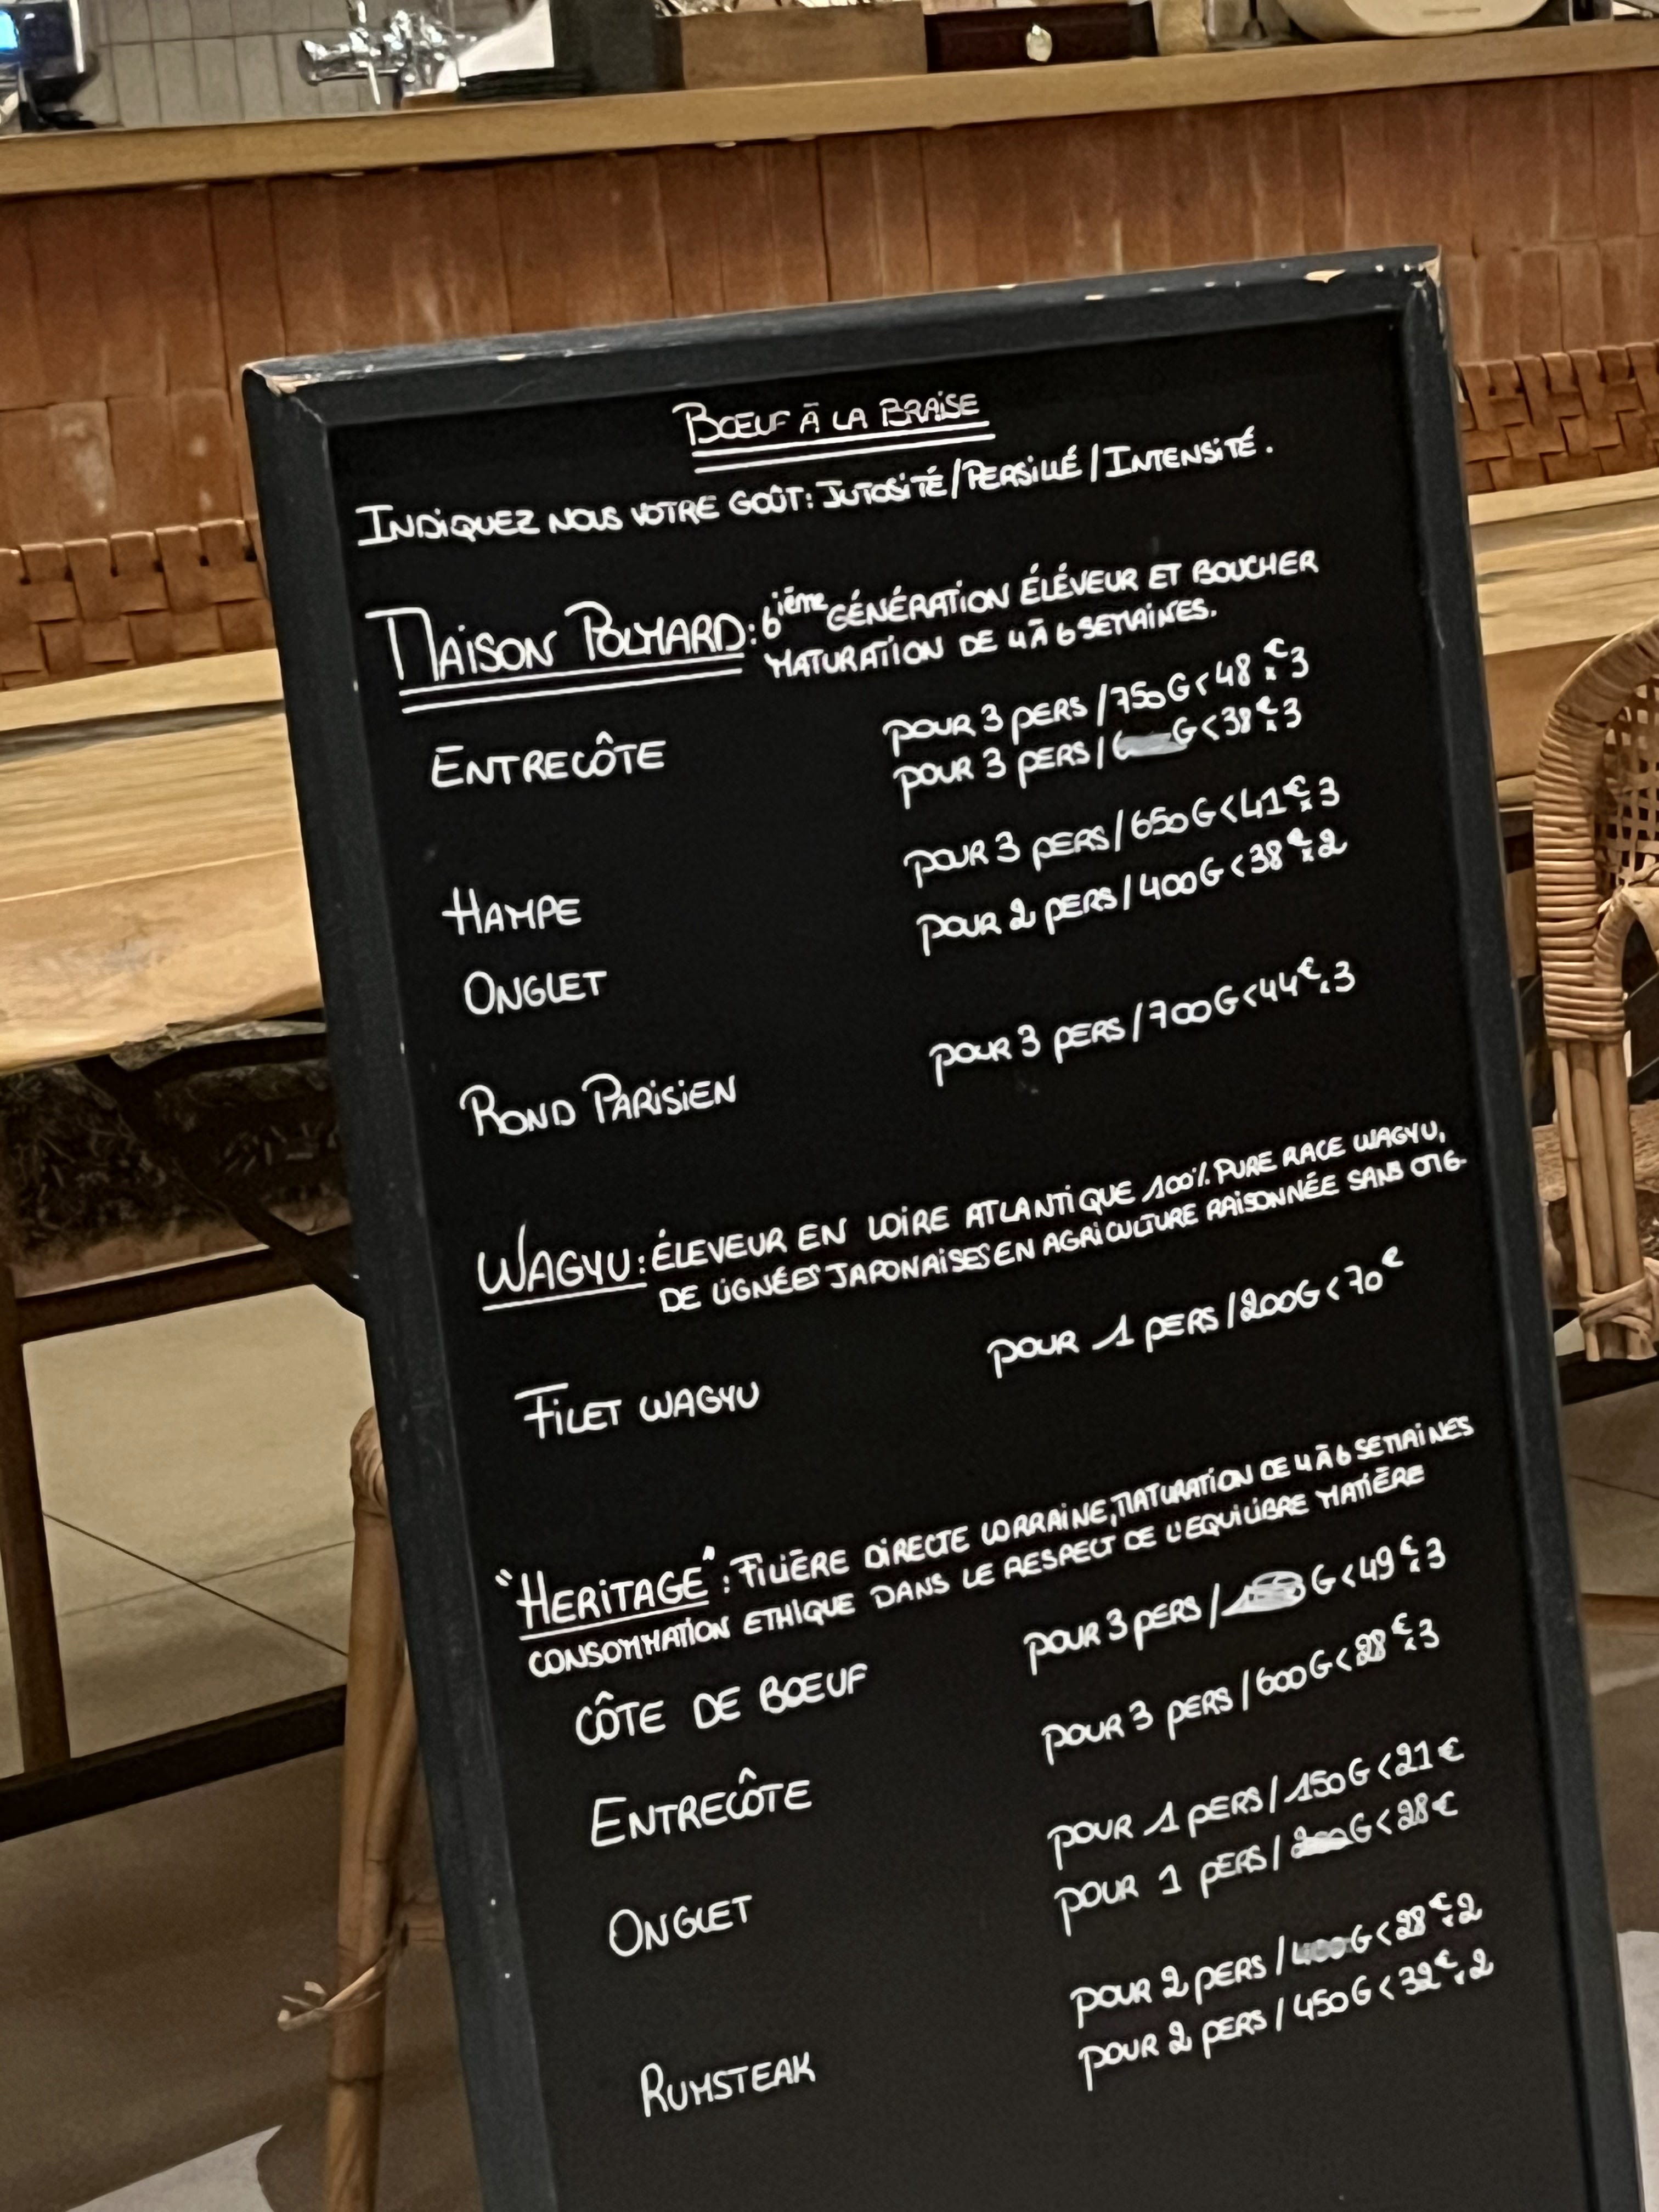 BŒUF À LA BRAISE
INDIQUEZ NOUS VOTRE GOÛT: JUTOSITÉ/PERSILLÉ/INTENSITÉ.
MAISON POLMARD: 6ième GÉNÉRATION ÉLÉVEUR ET BOUCHER
MATURATION DE 4 À 6 SEMAINES.
ENTRECÔTE POUR 3 PERS /750G<48€x3
POUR 3 PERS / G<38€x3
HAMPE POUR 3 PERS/650G<41€x3
ONGLET POUR 2 PERS/400G<38€x2
ROND PARISIEN POUR 3 PERS/700G<44€x3
WAGYU: ÉLEVEUR EN LOIRE ATLANTIQUE 100% PURE RACE WAGYU,
DE LIGNÉES JAPONAISES EN AGRICULTURE RAISONNÉE SANS OMG.
FILET WAGYU POUR 1 PERS/200G<70€
"HERITAGE": FILIÈRE DIRECTE LORRAINE, MATURATION DE 4 À 6 SEMAINES
CONSOMMATION ETHIQUE DANS LE RESPECT DE L'EQUILIBRE MATIÈRE
CÔTE DE BŒUF POUR 3 PERS / G<49€x3
ENTRECÔTE POUR 3 PERS /600G<28€x3
ONGLET POUR 1 PERS/150G<21€
POUR 1 PERS/ G<28€
RUMSTEAK POUR 2 PERS /400G<28€x2
POUR 2 PERS /450G<32€x2